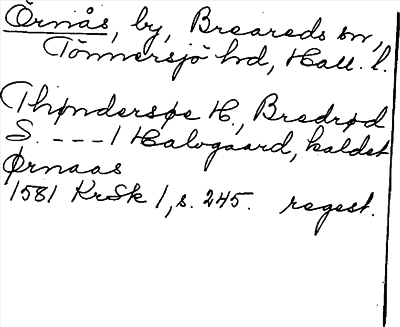 Örnås, by, Breareds sn,
Tönnersjö hd, Hall. l.
Thøndersøe H., Bredrød
S. --- 1 Halvgaard, kaldet
Ørnaas
1581 KrSk 1, s. 245. regest.